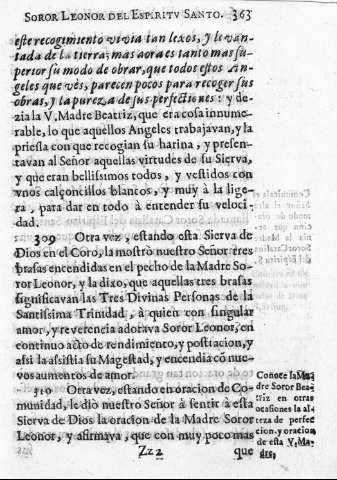 SOROR LEONOR DEL ESPIRITV SANTO. 363
este recogimiento vivia tan lexos, y levan-
tada de la tierra, mas aora es tanto mas su-
perior su modo de obrar, que todos estos An-
geles que vès, parecen pocos para recoger sus
obras, y la pureza de sus perfectiones: y de-
zia la V. Madre Beatriz, que era cosa innume-
rable, lo que aquellos Angeles trabajavan, y la
priessa con que recogian su harina, y presen-
tavan al Señor aquellas virtudes de su Sierva,
y que eran bellissimos todos, y vestidos con
vnos calçoncillos blancos, y muy à la lige-
ra, para dar en todo à entender su veloci-
dad.
309 Otra vez, estando esta Sierva de
Dios en el Coro, la mostrò nuestro Señor tres
brasas encendidas en el pecho de la Madre So-
ror Leonor, y la dixo, que aquellas tres brasas
significavan las Tres Divinas Personas de la
Santissima Trinidad, à quien con singular
amor, y reverencia adorava Soror Leonor, en
continuo acto de rendimiento, y postracion, y
assi la assistia su Magestad, y encendia cō nue-
vos aumentos de amor.
310 Otra vez, estando en oracion de Co-
munidad, le diò nuestro Señor à sentir à esta
Sierva de Dios la oracion de la Madre Soror
Leonor, y afirmava, que con muy poco mas
Zz 2 que
Conoce la Ma-
dre Soror Bea-
triz en otras
ocasiones la al-
teza de perfec
cion, y oracion
de esta V. Ma-
dre,